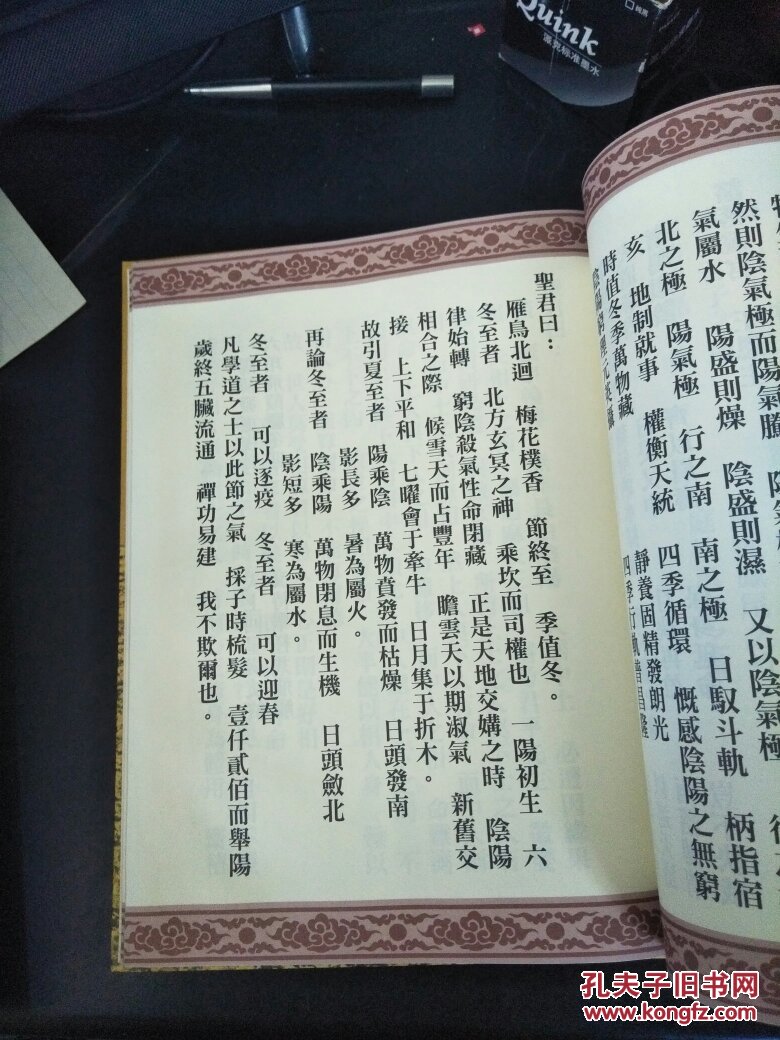 Quink
派克标准墨水
然則陰氣極而陽氣騰
氣屬水　陽盛則燥　陰盛則濕　又以陰氣極
北之極　陽氣極　行之南　南之極　日馭斗軌　柄指宿
亥　地制就事　權衡天統　四季循環　慨感陰陽之無窮
時值冬季萬物藏　靜養固精發朗光
聖君曰：
雁鳥北迴　梅花樸香　節終至　季值冬。
冬至者　北方玄冥之神　乘坎而司權也　一陽初生　六
律始轉　窮陰殺氣性命閉藏　正是天地交媾之時　陰陽
相合之際　候雪天而占豐年　瞻雲天以期淑氣　新舊交
接　上下平和　七曜會于牽牛　日月集于折木。
故引夏至者　陽乘陰　萬物賁發而枯燥　日頭發南
影長多　暑為屬火。
再論冬至者　陰乘陽　萬物閉息而生機　日頭斂北
影短多　寒為屬水。
冬至者　可以逐疫　冬至者　可以迎春
凡學道之士以此節之氣　採子時梳髮　壹仟貳佰而舉陽
歲終五臟流通　禪功易建　我不欺爾也。
孔夫子旧书网
www.kongfz.com